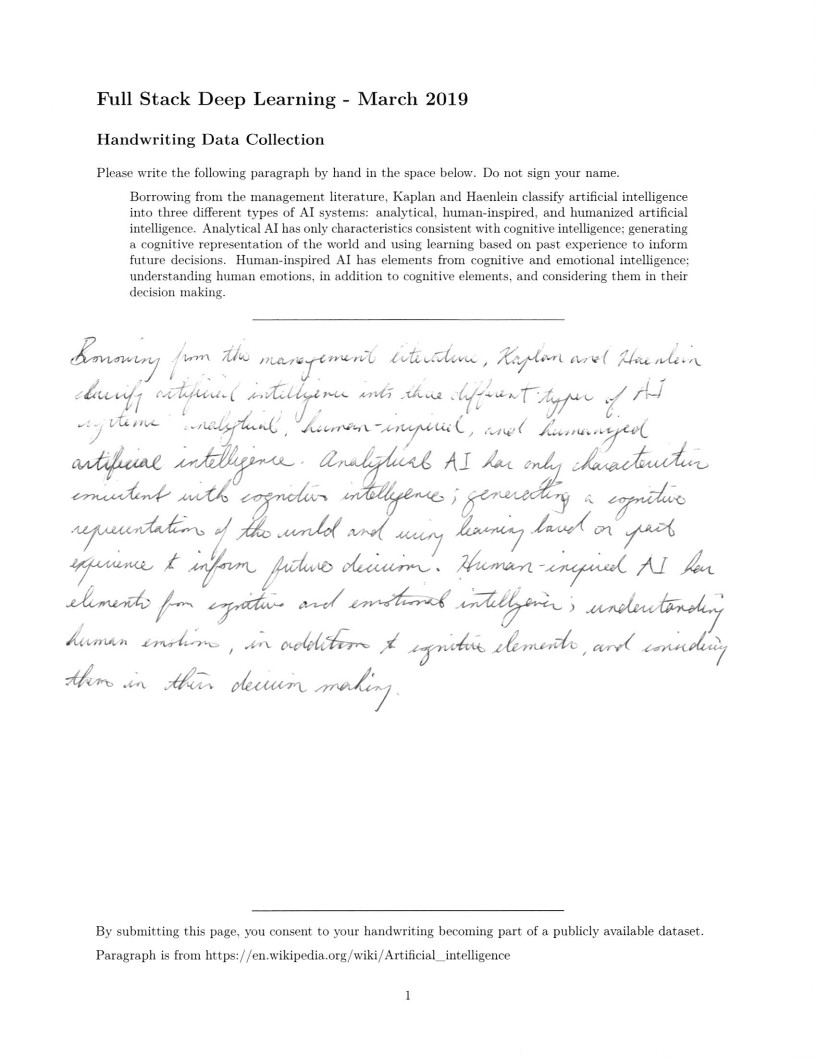 Full Stack Deep Learning - March 2019
Handwriting Data Collection
Please write the following paragraph by hand in the space below. Do not sign your name.
Borrowing from the management literature, Kaplan and Haenlein classify artificial intelligence
into three different types of AI systems: analytical, human-inspired, and humanized artificial
intelligence. Analytical AI has only characteristics consistent with cognitive intelligence; generating
a cognitive representation of the world and using learning based on past experience to inform
future decisions. Human-inspired AI has elements from cognitive and emotional intelligence;
understanding human emotions, in addition to cognitive elements, and considering them in their
decision making.
Borrowing from the management literature, Kaplan and Haenlein
classify artificial intelligence into three different types of AI
systems analytical, human-inspired, and humanized
artificial intelligence. Analytical AI has only characteristics
consistent with cognitive intelligence; generating a cognitive
representation of the world and using learning based on past
experience to inform future decisions. Human-inspired AI has
elements from cognitive and emotional intelligence; understanding
human emotions, in addition to cognitive elements, and considering
them in their decision making.
By submitting this page, you consent to your handwriting becoming part of a publicly available dataset.
Paragraph is from https://en.wikipedia.org/wiki/Artificial_intelligence
1